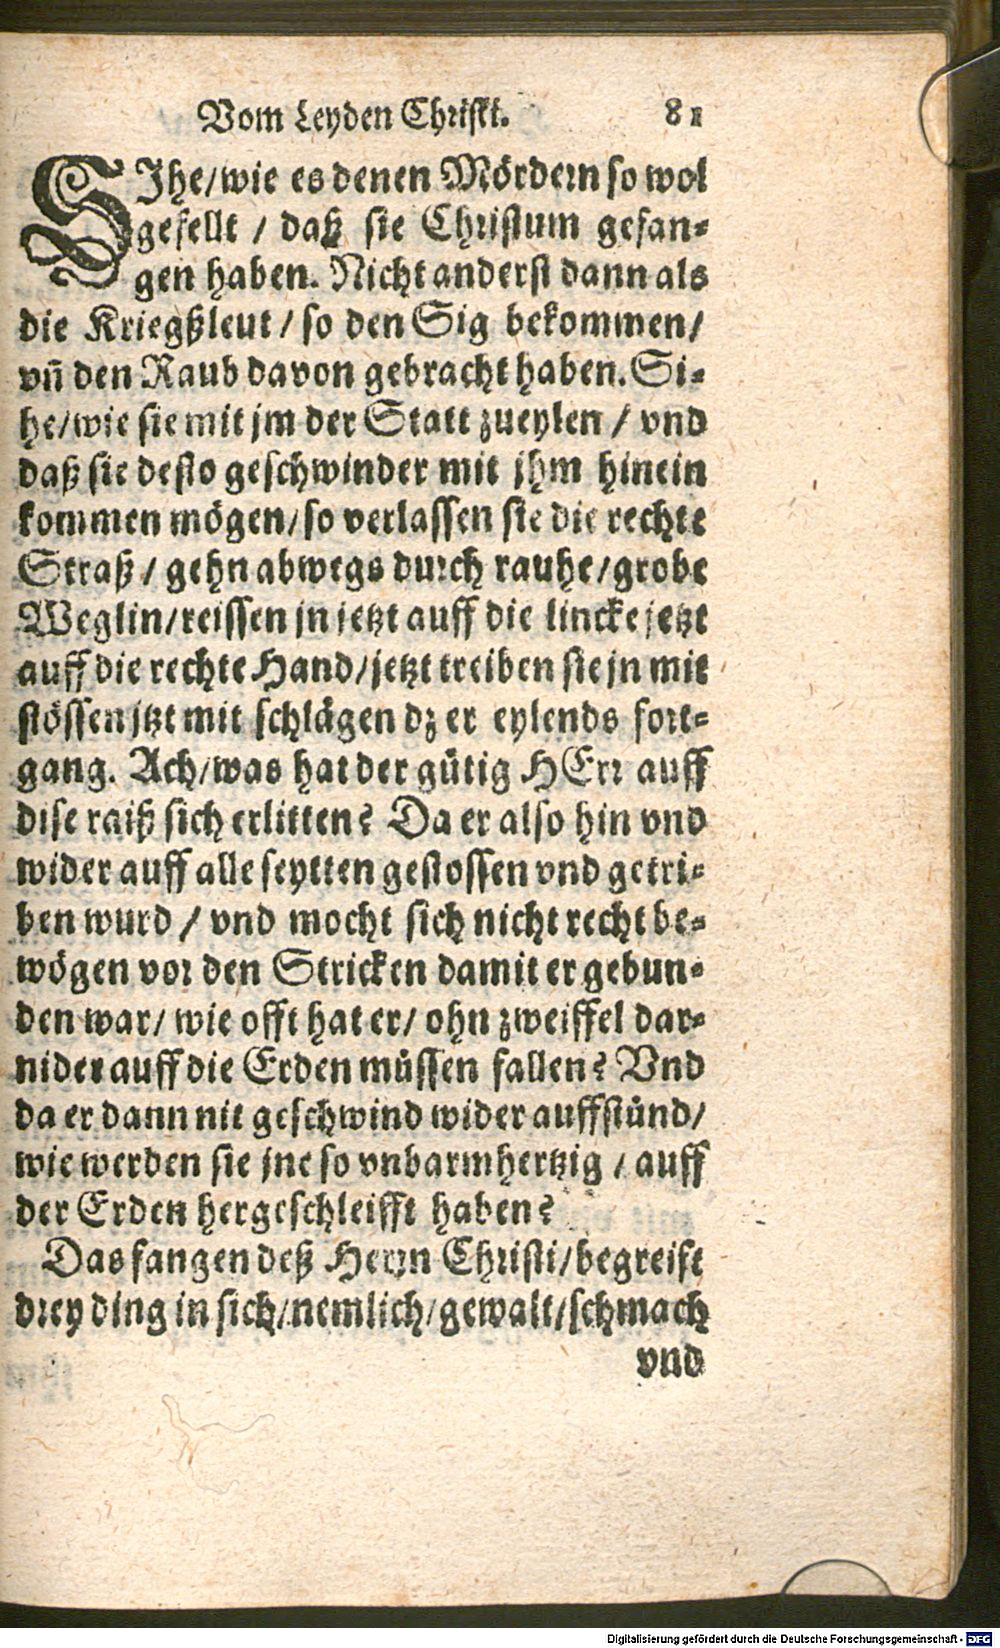 Vom Leyden Christi. 81
SIhe/wie es denen Mördern so wol
gefellt / daß sie Christum gefan-
gen haben. Nicht anderst dann als
die Kriegßleut / so den Sig bekommen/
vn̄ den Raub davon gebracht haben. Si-
he/wie sie mit jm der Statt zueylen / vnd
daß sie desto geschwinder mit jhm hinein
kommen mögen/so verlassen sie die rechte
Straß / gehn abwegs durch rauhe/grobe
Weglin/reissen jn jetzt auff die lincke jetzt
auff die rechte Hand/jetzt treiben sie jn mit
stössen jtzt mit schlägen dz er eylends fort-
gang. Ach/was hat der gütig HErr auff
dise raiß sich erlitten? Da er also hin vnd
wider auff alle seytten gestossen vnd getri-
ben wurd / vnd mocht sich nicht recht be-
wögen vor den Stricken damit er gebun-
den war/ wie offt hat er/ ohn zweiffel dar-
nider auff die Erden müssen fallen? Vnd
da er dann nit geschwind wider auffstünd/
wie werden sie jne so vnbarmhertzig / auff
der Erden hergeschleifft haben?
Das fangen deß Herrn Christi/begreift
drey ding in sich/nemlich/gewalt/schmach
vnd
Digitalisierung gefördert durch die Deutsche Forschungsgemeinschaft - DFG